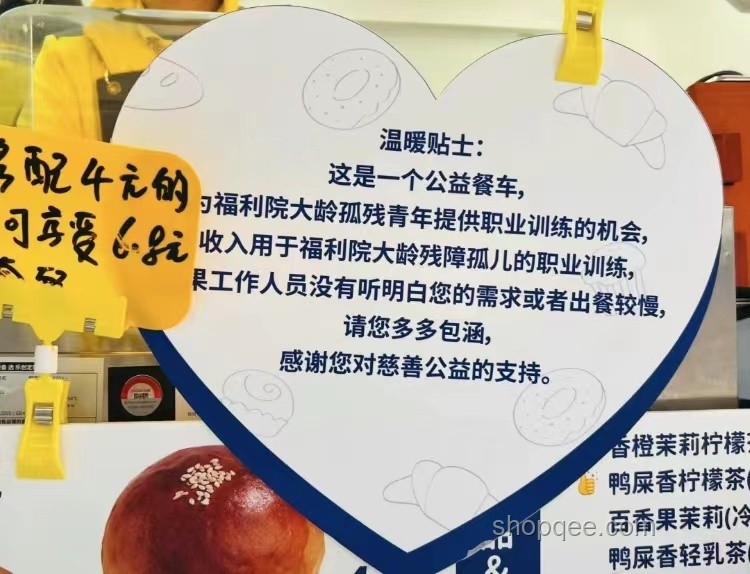 温暖贴士：
这是一个公益餐车,
为福利院大龄孤残青年提供职业训练的机会,
收入用于福利院大龄残障孤儿的职业训练,
果工作人员没有听明白您的需求或者出餐较慢,
请您多多包涵,
感谢您对慈善公益的支持。
配4元的
可享受6.8元
香橙茉莉柠檬茶
鸭屎香柠檬茶(
百香果茉莉(冷
鸭屎香轻乳茶(
品&
shopqee.com